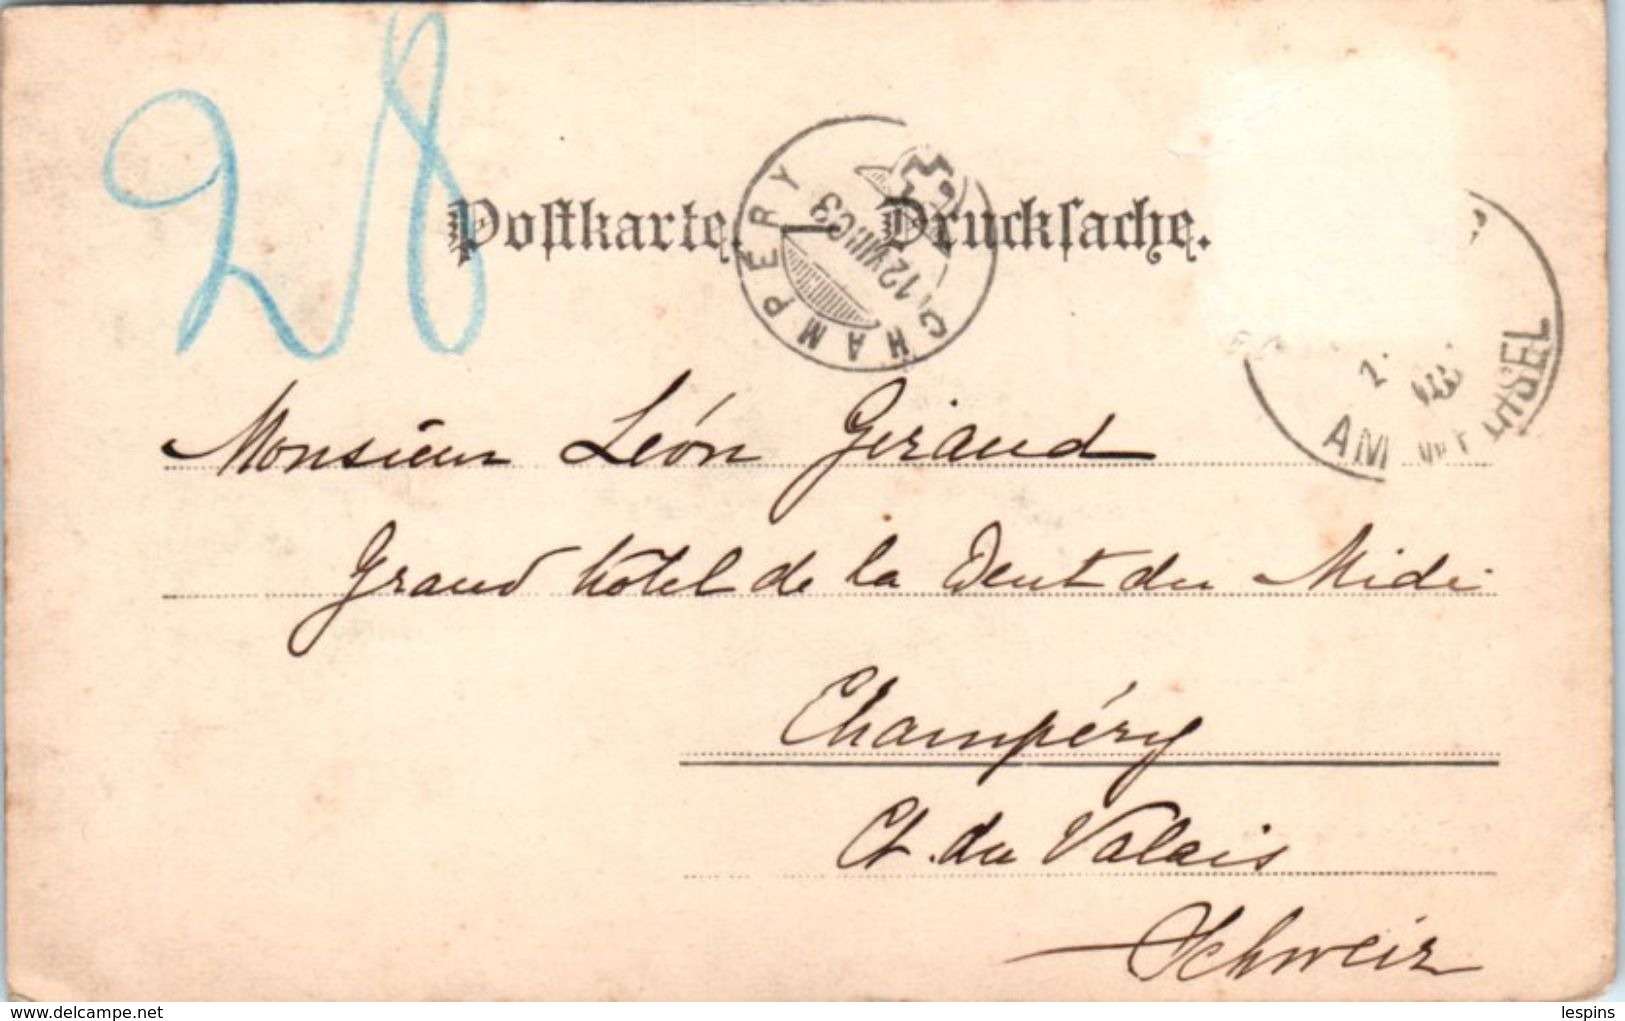 28
Postkarte. Drucksache.
CHAMPERY
12 VIII 03
AM
NSEL
Monsieur Léon Geraud
Grand hôtel de la Dent du Midi
Champéry
Ct. du Valais
Schweiz
www.delcampe.net
lespins